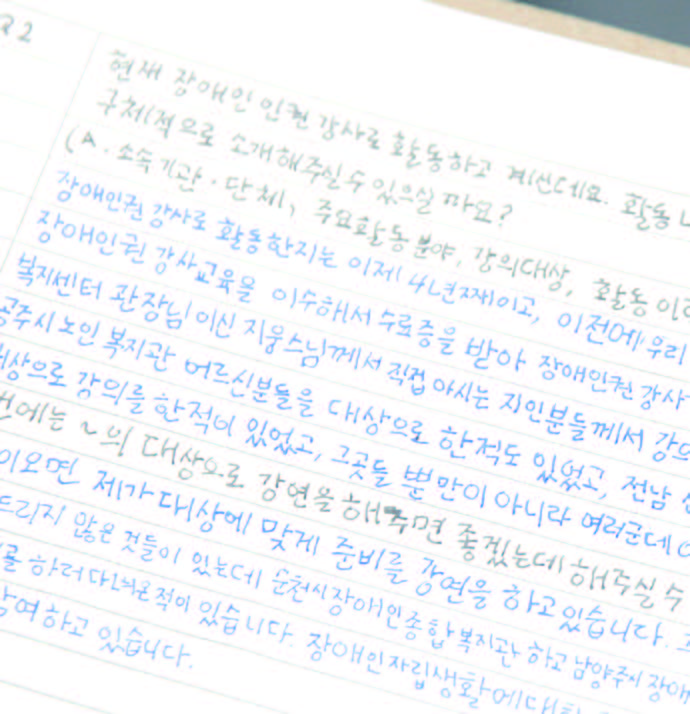 Q2
현재 장애인 인권 강사로 활동하고 계신데요. 활동
구체적으로 소개해주실 수 있으실까요?
(A. 소속기관·단체, 주요활동 분야, 강의대상, 활동
장애인권 강사로 활동한지는 이제 4년째이고, 이전에 우리
장애인권 강사교육을 이수해서 수료증을 받아 장애인권 강사
복지센터 관장님이신 지웅스님께서 직접 아시는 지인분들께서
공주시 노인 복지관 어르신분들을 대상으로 한적도 있었고, 전남
대상으로 강의를 한적이 있었고, 그곳들 뿐만이 아니라 여러군데
에는 ~의 대상으로 강연을 해주면 좋겠는데 해주실 수
이오면 제가 대상에 맞게 준비를 강연을 하고 있습니다.
드리지 않은 것들이 있는데 순천시장애인종합복지관 하고 남양주시
를 하러 다녀온적이 있습니다. 장애인자립생활에 대한
참여하고 있습니다.